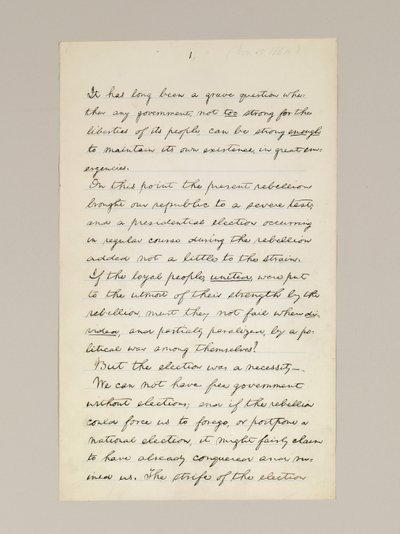 1.
It has long been a grave question whe-
ther any government, not too strong for the
liberties of its people, can be strong enough
to maintain its own existence, in great em-
ergencies.
On this point the present rebellion
brought our republic to a severe test;
and a presidential election occurring
in regular course during the rebellion
added not a little to the strain.
If the loyal people, united, were put
to the utmost of their strength by the
rebellion, must they not fail when di-
vided, and partially paralized, by a po-
litical war among themselves?
But the election was a necessity—
We can not have free government
without elections; and if the rebellion
could force us to forego, or postpone a
national election, it might fairly claim
to have already conquered and ru-
ined us. The strife of the election